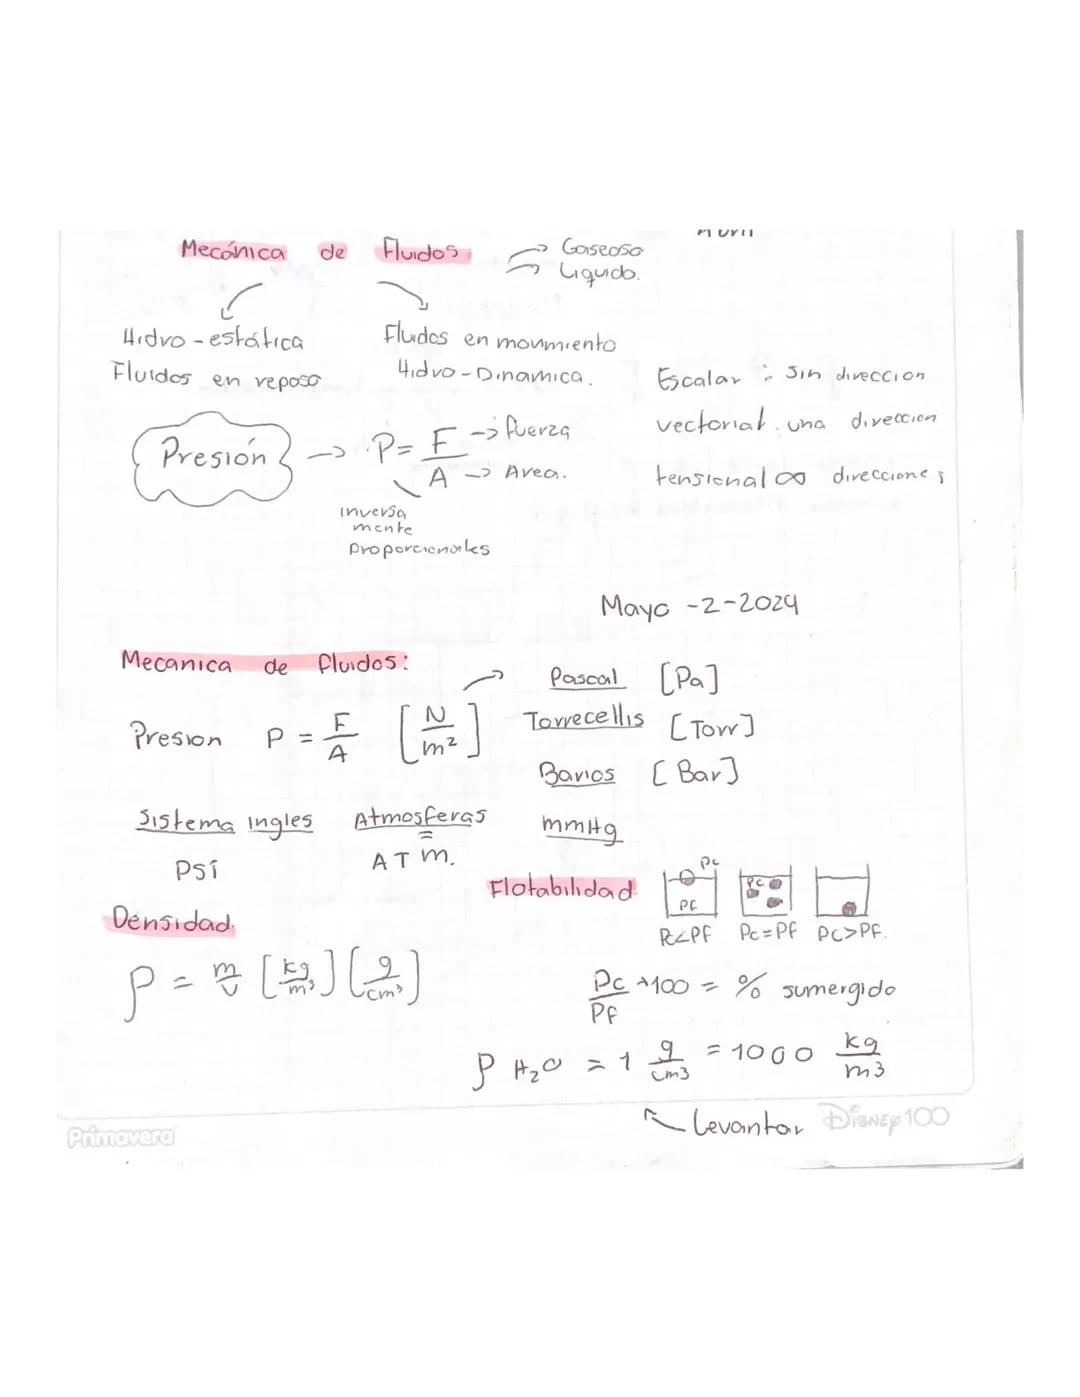 Mecánica de Fluidos → Gaseoso
→ Liquido.
Hidro-estática
Fluidos en reposo
Fluidos en movimiento
Hidro-Dinamica.
Escalar : Sin direccion
vectorial. una direccion
tensional ∞ direcciones
Presión → P= F/A → fuerza
→ Area.
inversa
mente
proporcionales
Mayo -2-2024
Mecanica de fluidos:
Presion P = F/A [N/m²]
Pascal [Pa]
Torrecellis [Torr]
Barios [Bar]
mmHg
Sistema ingles
PSi
Atmosferas
=
ATm.
Densidad.
ρ = m/v [kg/m³] [g/cm³]
Flotabilidad
Pc
Pf
Pc
Pc<Pf Pc=Pf Pc>Pf.
Pc/Pf *100 = % sumergido
ρ H₂O = 1 g/cm3 = 1000 kg/m3
Levantar
Primavera
DISNEY 100